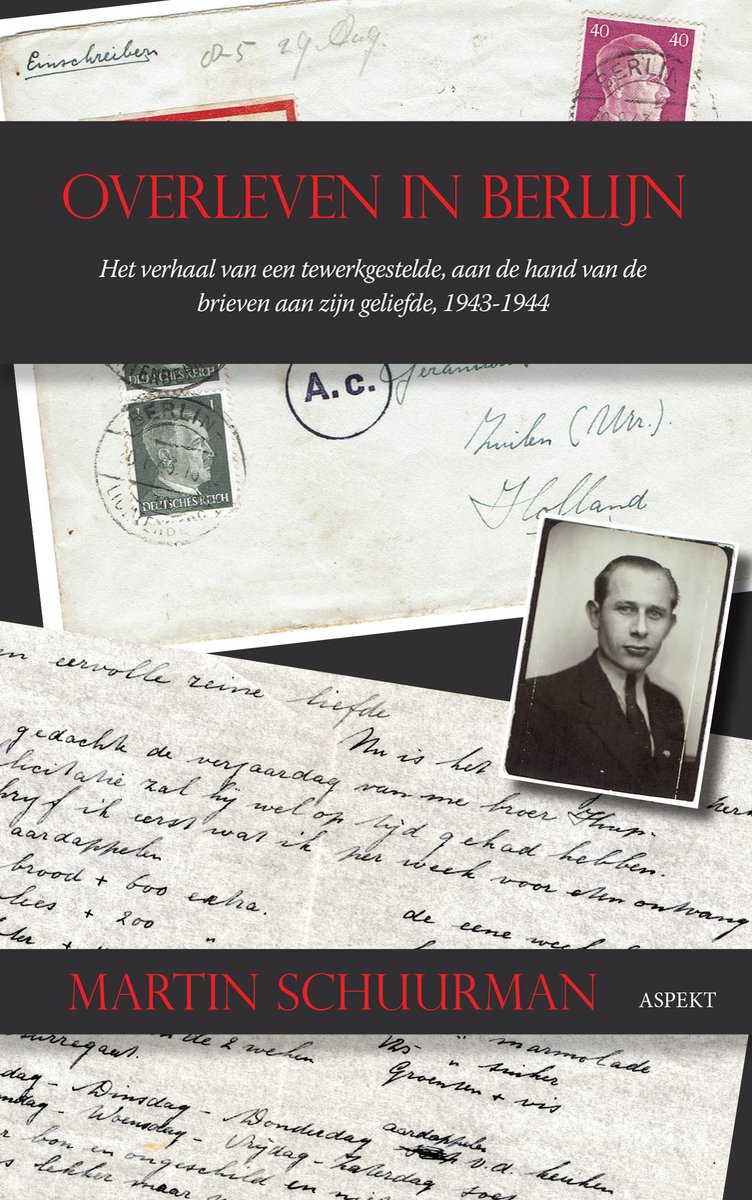 Einschreiben 29 Aug.
40 40
BERLIN
OVERLEVEN IN BERLIJN
Het verhaal van een tewerkgestelde, aan de hand van de
brieven aan zijn geliefde, 1943-1944
DEUTSCHES REICH
A.c.
BERLIN
Zuilen (Utr.).
Holland
DEUTSCHES REICH
en eervolle reine liefde
Nu is het
gedachte de verjaardag van me broer
licitatie zal hij wel op tijd gehad hebben.
ik eerst wat ik per week voor eten ontvang
aardappelen
brood + 600 extra.
de eene week
+ 200 "
MARTIN SCHUURMAN ASPEKT
de 2 weken
surregaat.
125 " marmolade
" suiker
Groenten + vis
dag - Dinsdag - Donderdag
Woensdag - Vrijdag - Zaterdag
aardappelen
v.d. keuken
bon en ongeschild en
lekker maar